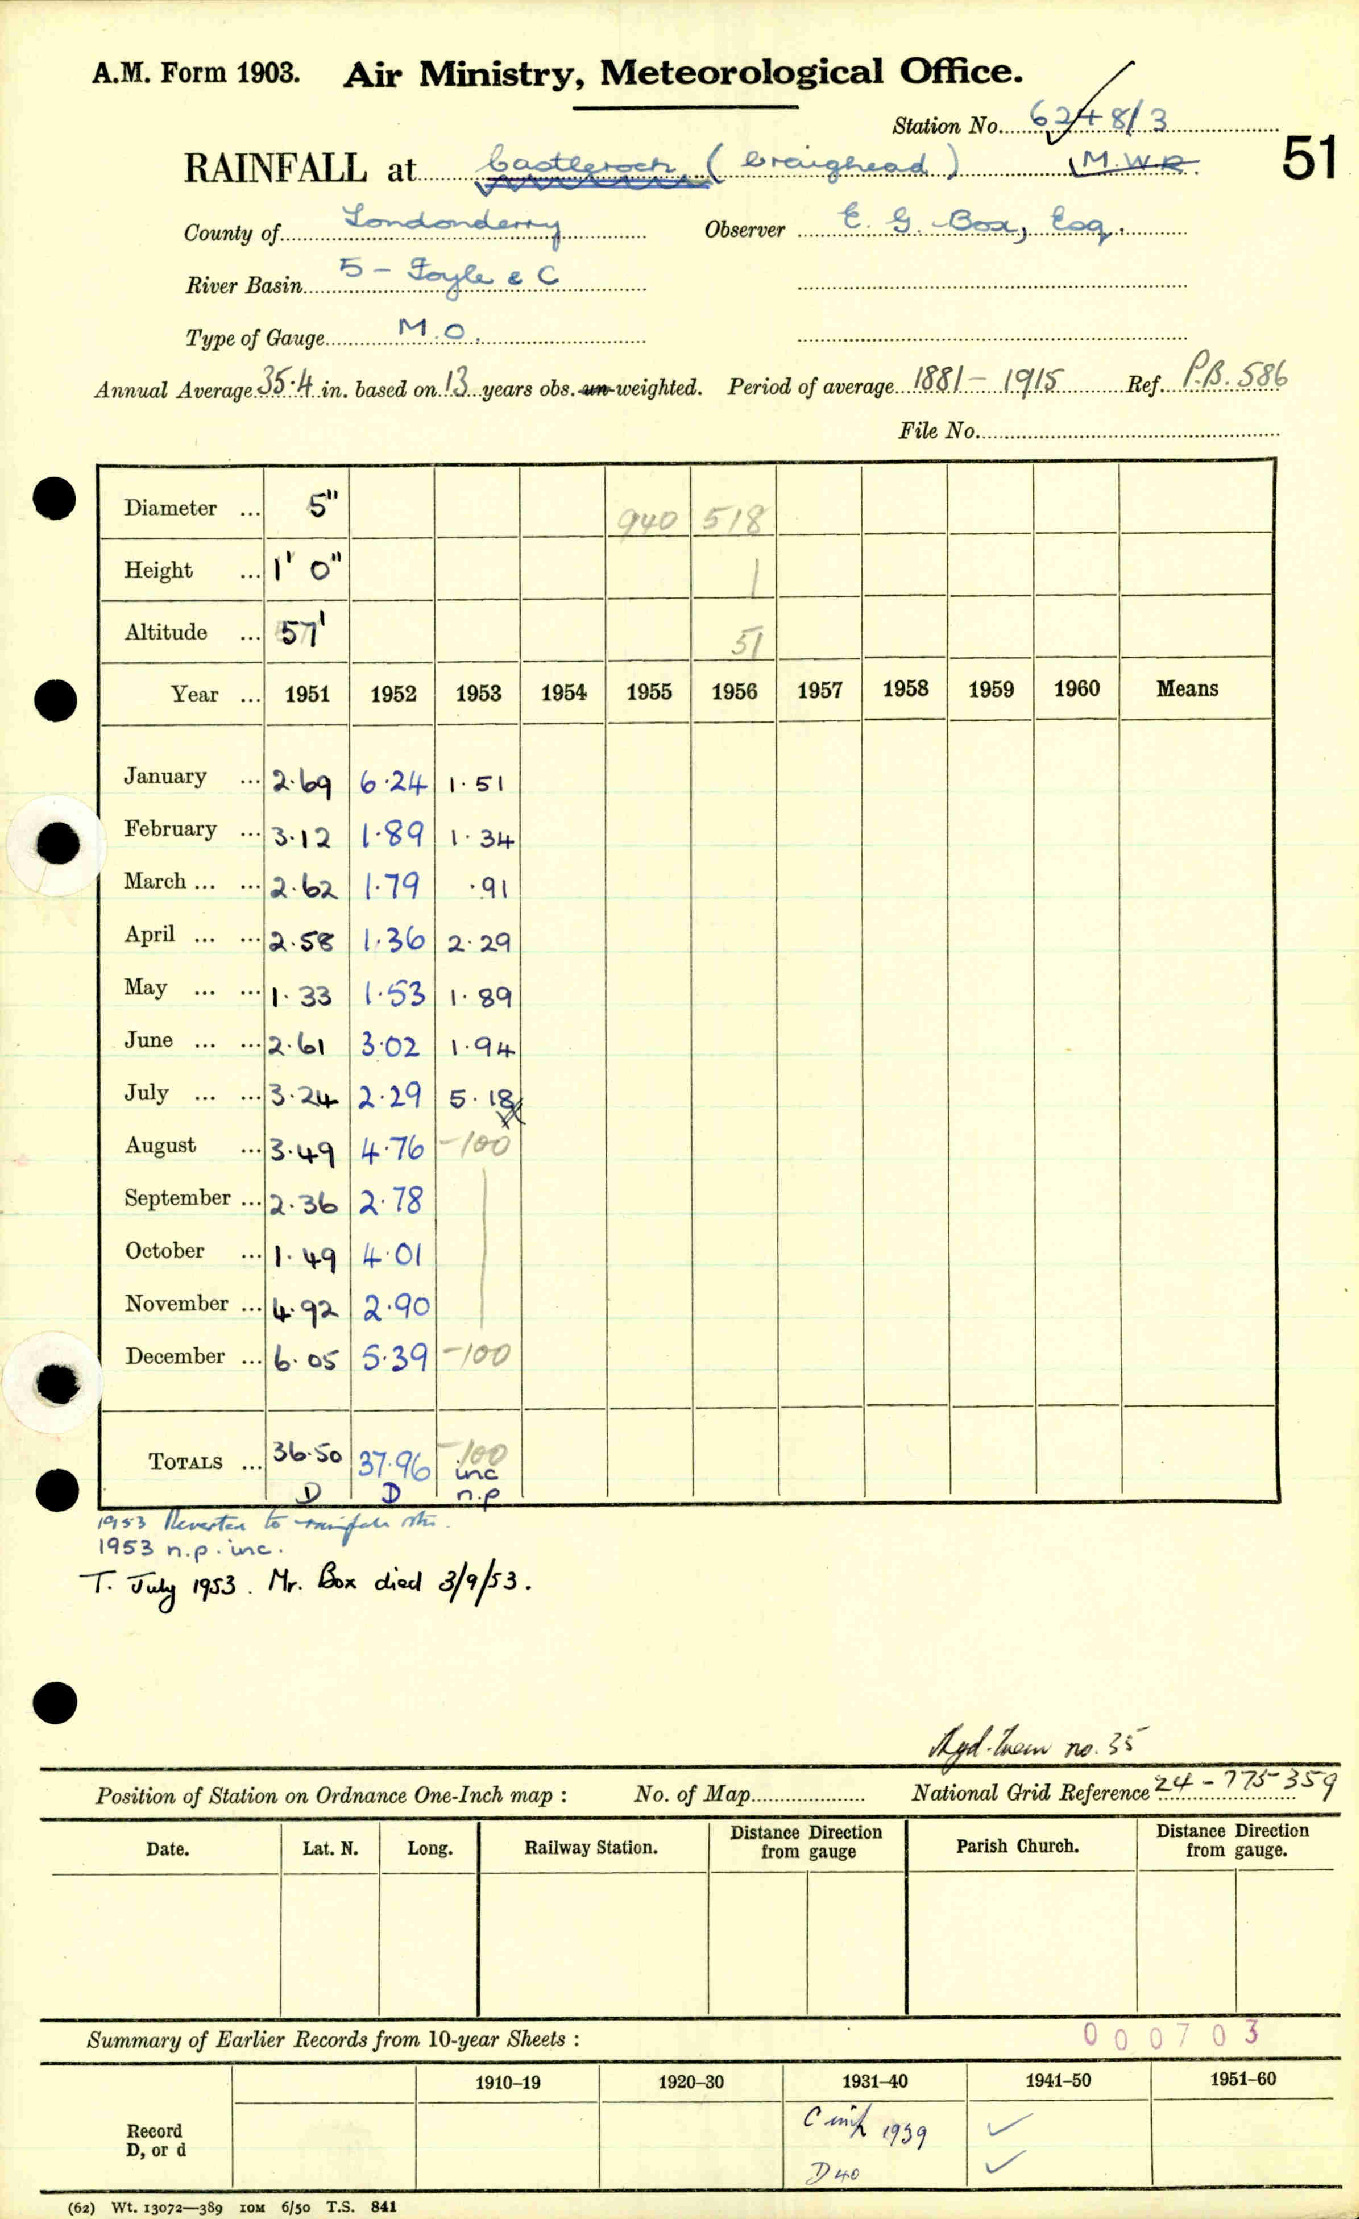 A.M. Form 1903. Air Ministry, Meteorological Office.
Station No. 6248/3
RAINFALL at Castlerock (Craighead) M.W.R. 51
County of Londonderry Observer E. G. Box, Esq.
River Basin 5 - Foyle & C
Type of Gauge M.O.
Annual Average 35.4 in. based on 13 years obs. un-weighted. Period of average 1881-1915 Ref. P.B. 586
File No.
Diameter ... 5" 940 518
Height ... 1' 0" 1
Altitude ... 57' 51
Year ... 1951 1952 1953 1954 1955 1956 1957 1958 1959 1960 Means
January ... 2.69 6.24 1.51
February ... 3.12 1.89 1.34
March ... ... 2.62 1.79 .91
April ... ... 2.58 1.36 2.29
May ... ... 1.33 1.53 1.89
June ... ... 2.61 3.02 1.94
July ... ... 3.24 2.29 5.18
August ... 3.49 4.76 -100
September ... 2.36 2.78
October ... 1.49 4.01
November ... 4.92 2.90
December ... 6.05 5.39 -100
TOTALS ... 36.50 37.96 -100
inc
D D n.p
1953 Reverted to rainfall stn.
1953 n.p. inc.
T. July 1953. Mr. Box died 3/9/53.
no. 35
Position of Station on Ordnance One-Inch map : No. of Map National Grid Reference 24-775359
Date. Lat. N. Long. Railway Station. Distance from Direction gauge Parish Church. Distance from Direction gauge.
Summary of Earlier Records from 10-year Sheets :
000703
1910-19 1920-30 1931-40 1941-50 1951-60
Record
D, or d
C 1939 ✓
D 40 ✓
(62) Wt. 13072—389 10M 6/50 T.S. 841